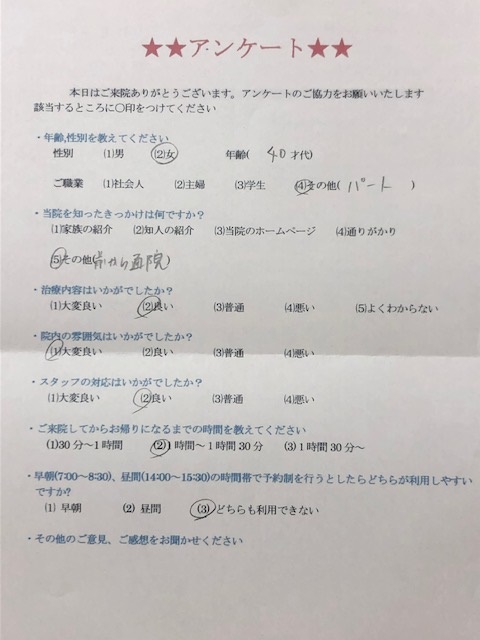 ★★アンケート★★
本日はご来院ありがとうございます。アンケートのご協力をお願いいたします
該当するところに〇印をつけてください
・年齢,性別を教えてください
性別 (1)男 (2)女 年齢( 40 才代)
ご職業 (1)社会人 (2)主婦 (3)学生 (4)その他( パート )
・当院を知ったきっかけは何ですか？
(1)家族の紹介 (2)知人の紹介 (3)当院のホームページ (4)通りがかり
(5)その他(前から通院)
・治療内容はいかがでしたか？
(1)大変良い (2)良い (3)普通 (4)悪い (5)よくわからない
・院内の雰囲気はいかがでしたか？
(1)大変良い (2)良い (3)普通 (4)悪い
・スタッフの対応はいかがでしたか？
(1)大変良い (2)良い (3)普通 (4)悪い
・ご来院してからお帰りになるまでの時間を教えてください
(1)30分～1時間 (2)1時間～1時間30分 (3)1時間30分～
・早朝(7:00～8:30)、昼間(14:00～15:30)の時間帯で予約制を行うとしたらどちらが利用しやすい
ですか?
(1) 早朝 (2) 昼間 (3)どちらも利用できない
・その他のご意見、ご感想をお聞かせください